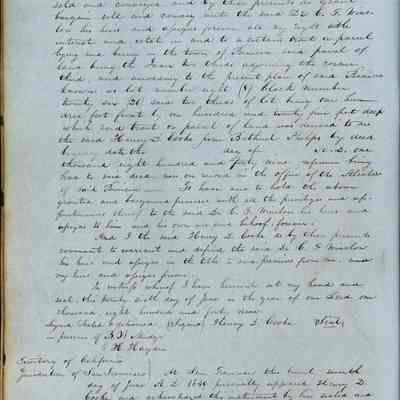 sold and conveyed and by these presents do grant
bargain sell and convey unto the said Dr C. F. Wins-
low his heirs and assigns forever all my right title
interest and estate in and to a certain tract or parcel
lying and being in the town of said parcel of
land being the two thirds adjoining the corner
third, and according to the present plan of said
known as lot number eight (8) Block number
twenty six 26 said two thirds of lot being one hun-
dred feet front by one hundred and twenty five feet deep
which said tract or parcel of land was deeded to me
the said Henry D. Cooke from Bethuel Phelps by deed
bearing date the day of A.D. one
thousand eight hundred and forty nine reference being
had to said deed now on record in the office of the Alcalde
of said To have and to hold the above
granted and bargained premises with all the privileges and ap-
purtenances thereof to the said Dr C. F. Winslow his heirs and
assigns to him and his own use and behoof forever.
And I the said Henry D. Cooke do by these presents
covenant to warrant and defend the said Dr C. F. Winslow
his heirs and assigns in the title to said premises from me and
my heirs and assigns forever.
In witness whereof I have hereunto set my hand and
seal, this twenty sixth day of June in the year of our Lord one
thousand, eight hundred and forty nine
Signed Sealed & delivered (Signed) Henry D. Cooke Seal
in presence of
Hayden
Territory of California
Jurisdiction of San Francisco At San Francisco this twenty seventh
day of June A.D. 1849 personally appeared Henry D.
Cooke and acknowledged the instrument by him sealed and